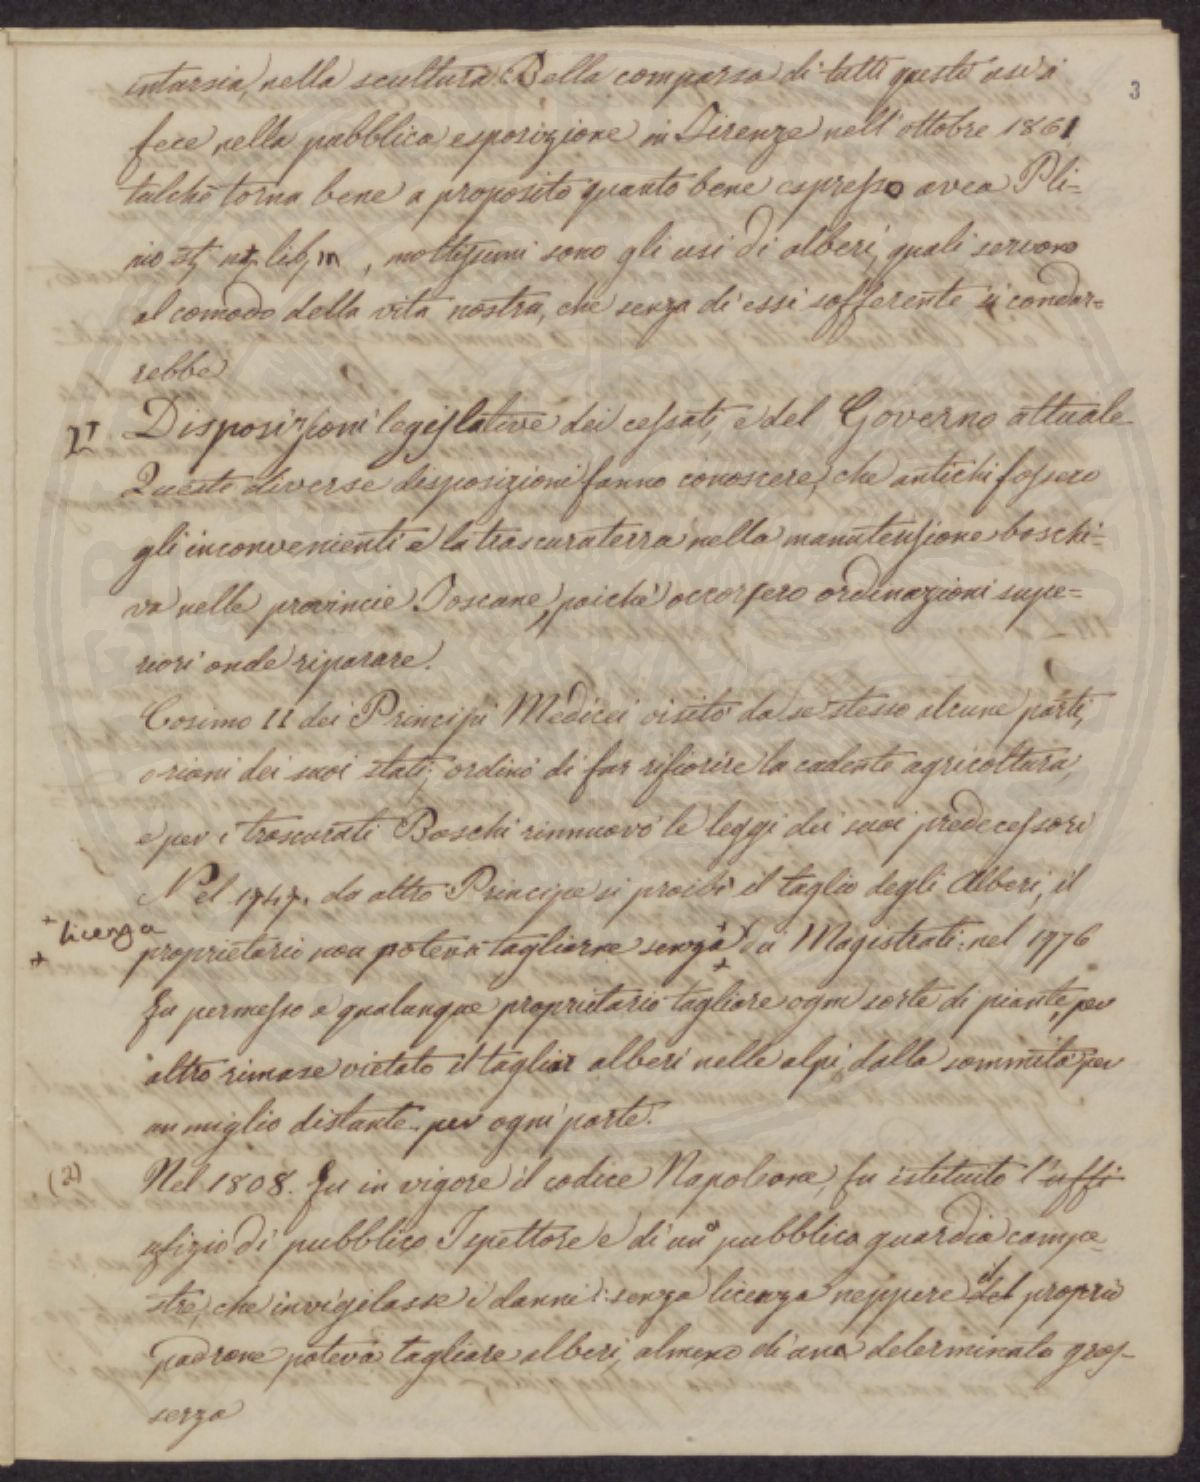 3
intarsia, nella scultura. Bella comparsa di tutti questi usi si
fece nella pubblica esposizione in Firenze nell'ottobre 1861
talchè torna bene a proposito quanto bene espresso avea Pli=
nio st, nt, lib, , moltissimi sono gli usi di alberi, quali servono
al comodo della vita nostra, che senza di essi sofferente si condur=
rebbe
Disposizioni legislative dei cessati, e del Governo attuale
Queste diverse disposizioni fanno conoscere, che antichi fossero
gli inconvenienti e la trascuratezza nella manutensione boschi=
va nelle provincie Toscane, poichè occorsero ordinazioni supe=
riori onde riparare.
Cosimo II dei Principi Medicei visitò da se stesso alcune parti,
e rioni dei suoi stati, ordinò di far rifiorire la cadente agricoltura,
e per i trascurati Boschi rinnuovò le leggi dei suoi predecessori
Nel 1747. da altro Principe si proibì il taglio degli Alberi, il
+ licenza
+ proprietario non poteva tagliarne senza + dei Magistrati: nel 1776
fu permesso a qualunque proprietario tagliare ogni sorte di piante, per
altro rimase vietato il tagliar alberi nelle alpi dalla sommità per
un miglio distante per ogni parte.
(2) Nel 1808. fu in vigore il codice Napoleone, fu istituito l'uffi
ufizio di pubblico Ispettore e di una pubblica guardia campe=
stre, che invigilasse i danni: senza licenza neppure del il proprio
padrone poteva tagliare alberi, almeno di una determinata gros=
sezza